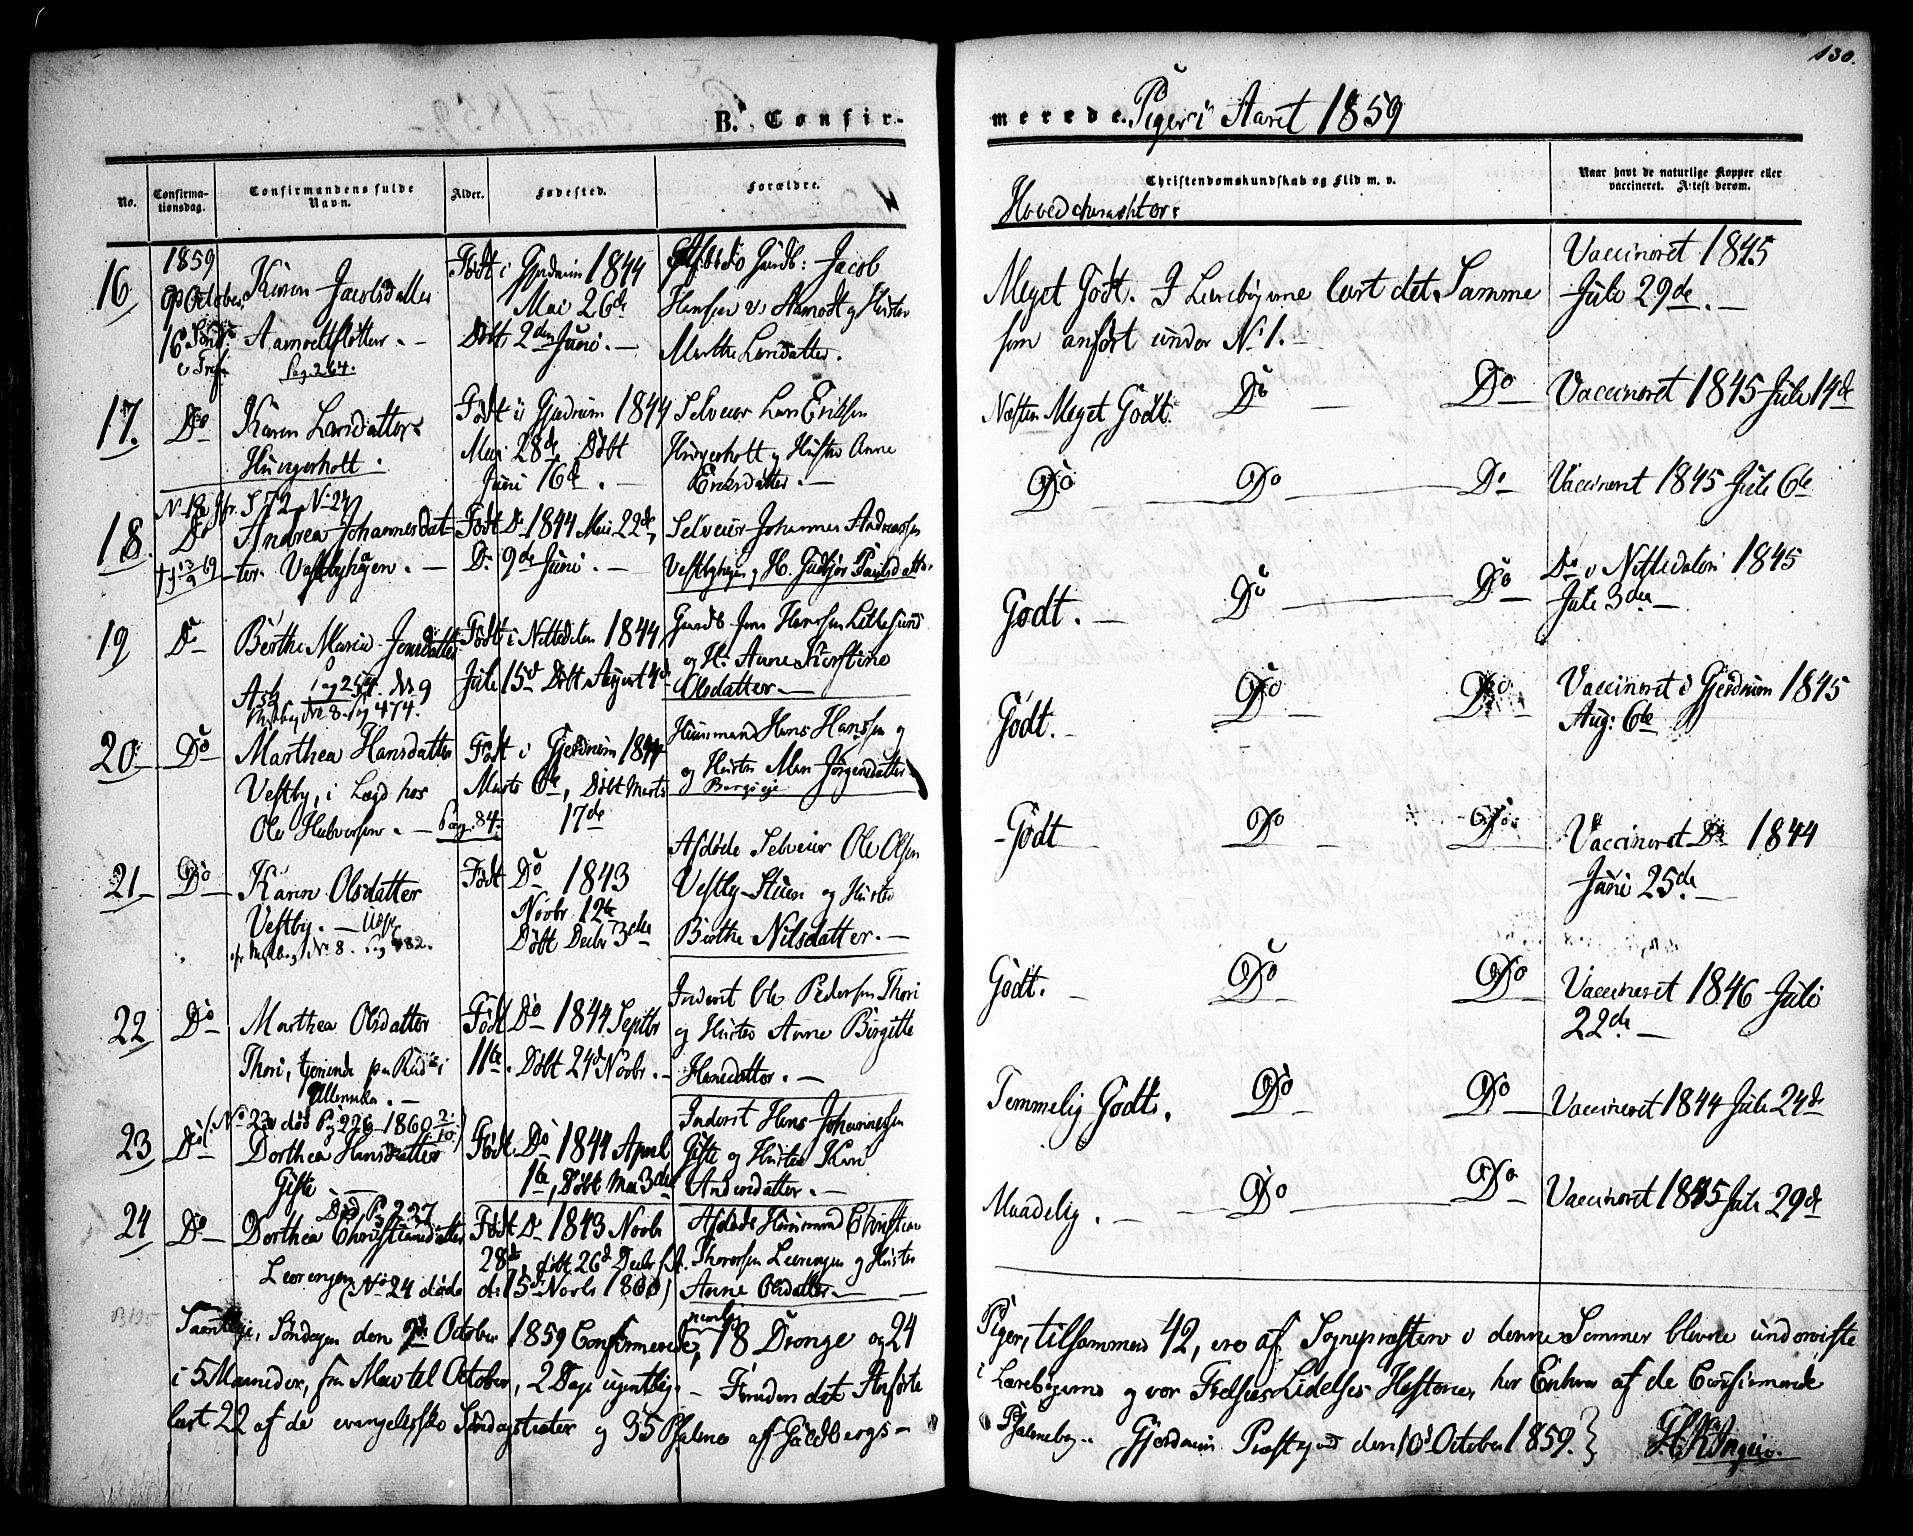 130.
B. Confir-
merede. Piger i Aaret 1859
No.
Confirma-
tionsdag.
Confirmandens fulde
Navn.
Alder.
Fødested.
Forældre.
Christendomskundskab og Flid m. v.
Naar havt de naturlige Kopper eller
vaccineret. Attest derom.
16
1859
October
16
Karen Jacobsdatter
Pag. 264.
Født i Gjerdrum 1844
Mai 26de
Døbt 2den Juni. —
Jacob
Marthe Larsdatter.
Meget Godt. I Lærebøgerne læst det Samme
som anført under No 1. —
Vaccineret 1845
Juli 29de. —
17.
Do
Karen Larsdatter
Hungerholt.
Født i Gjerdrum 1844
Mai 28de Døbt
Juni 16de. —
Selveier Lars Eriksen
Hungerholt og Hustro Anne
Eriksdatter. —
Næsten Meget Godt. Do — Do
Vaccineret 1845 Juli 14de
18.
Do
Andrea Johannesdat-
ter Vestbyhagen. —
Født Do 1844 Mai 22de,
Do 9de Juni. —
Selveier Johannes Andreassen
Vestbyhagen og H.
Do — Do — Do
Vaccineret 1845 Juli 6te
19
Do
Berthe Marie Jensdatter
Ask
Pag 254. No 9
No 8. Pag 474.
Født i Nittedalen 1844
Juli 15de Døbt August 4de
og H. Anne Kierstine
Olsdatter —
Godt. — Do — Do —
Do i Nittedalen 1845
Juli 3die —
20
Do
Marthea Hansdatter
Vestby, i Lægd hos
Ole Halvorsen. — Pag. 84.
Født i Gjerdrum 1844
Marts 6te, Døbt Marts
17de
Huusmand Hans Hanssen og
og Hustro Mari Jørgensdatter
Godt. — Do — Do
Vaccineret i Gjerdrum 1845
Aug: 6te
21
Do
Karen Olsdatter
Vestby. —
No 8. Pag 482.
Født Do 1843
Novbr 12te
Døbt Decbr 3die
Afdøde Selveier Ole Olsen
Vestby-Stuen og Hustro
Berthe Nilsdatter. —
Godt Do — Do
Vaccineret Do 1844
Juni 25de. —
22
Do
Marthea Olsdatter
Thori, tjenende paa
Født Do 1844 Septbr
11te. Døbt 24de Novbr. —
Inderst Ole Pedersen Thori
og Hustro Anne Birgitte
Hansdatter. —
Godt. — Do — Do
Vaccineret 1846 Juli
22de —
23
Do
(No 23 død Pag 226 1860 2/10)
Dorthea Hansdatter
Giste
Født Do 1844 April
1te, Døbt Mai 3die
Inderst Hans Johannessen
Giste og Hustro Kari
Andersdatter. —
Temmelig Godt. Do — Do
Vaccineret 1844 Juli 24de
24
Do
Død Pag 227
Dorthea Christiansdatter
(No 24 døde
Født Do 1843 Novbr
28de, døbt 26de Decbr
d: 15de Novbr 1860)
Afdøde Huusmand Christian
og Hustro
Anne Olsdatter. —
Maadelig. — Do — Do
Vaccineret 1845 Juli 29de
Samtlige, Søndagen den 9de October 1859 Confirmerede, nemlig 18 Drenge og 24
i 5 Maaneder, fra Mai til October, 2 Dage ugentlig. — Foruden det Anførte
læst 22 af de evangeliske Søndagstexter og 35 Psalmer af Guldbergs-
Piger, tilsammen 42, ere af Sognepræsten i denne Sommer blevne underviste
i Lærebøgerne og vor Frelsers Lidelses Historie, har Enhver af de Confirmerede
Psalmebog. Gjerdrum Præstegaard den 10de October 1859.